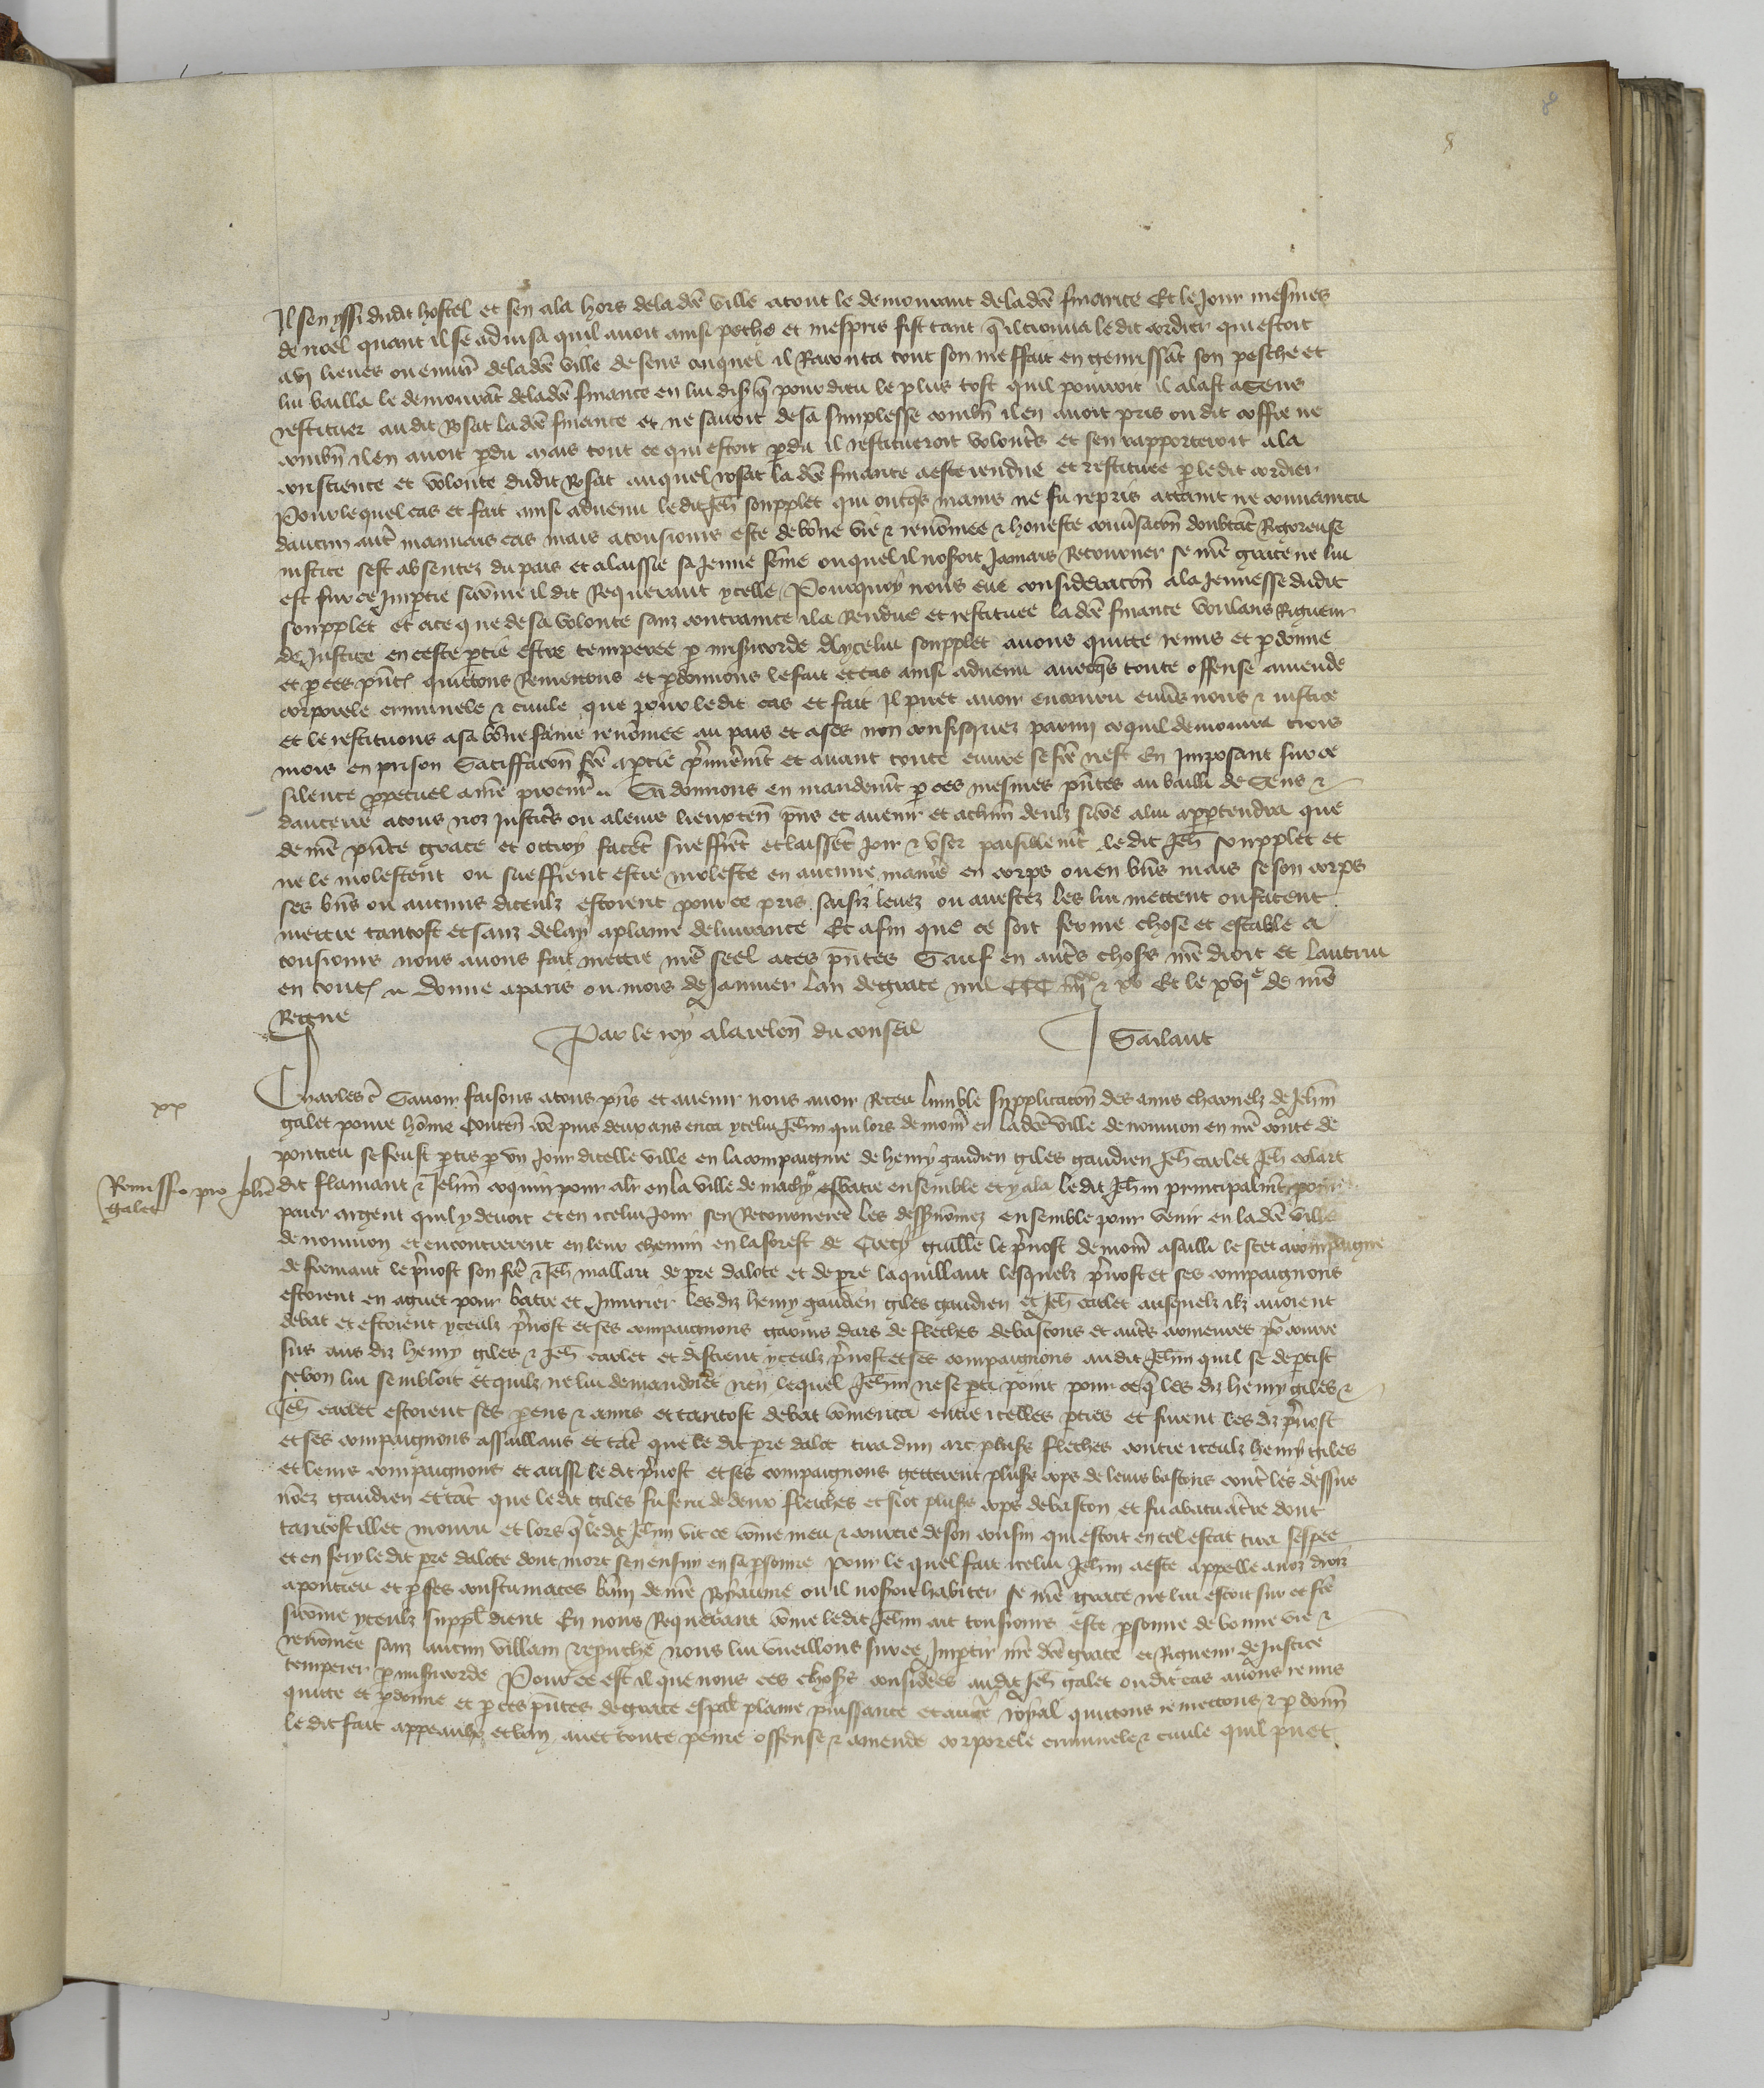 8
8
Il sen yssi dudit hostel et sen ala hors de la dce ville atout le demourant de la dce finance Et le jour mesmes
de noel quant il se advisa quil avoit ainsi pechie et mespris fist tant q il trouva le dit cordier qui estoit
a vj lieues ou environ de la dce ville de sens auquel il raconta tout son meffait en gemissāt son peschie et
lui bailla le demourāt de la dce finance en lui disāt q pour dieu le plus tost quil pourroit il alast a Sens
restituer audit Rosat la dce finance et ne savoit de sa simplesse combn il en avoit pris ou dit coffre ne
combn il en avoit pdu mais tout ce qui estoit pdu il restitueroit volontrs et sen rapporteroit a la
conscience et volonte dudit Rosat auquel rosat la dce finance a este rendue et restituee p le dit cordier
Pour lequel cas et fait ainsi advenu le dit Jeh soupplet qui onqs mais ne fu repris attaint ne convaincu
daucun autr mauvais cas mais a tousiours este de bōne vie & renōmee & honeste convsacōn doubtāt Rigoreuse
justice sest absentez du pais et a laissie sa jeune fēme ouquel il nosoit jamais Retourner se nre grace ne lui
est sur ce Impartie sicōme il dit Requerant ycelle Pourquoy nous eue consideracōn a la jeunesse dudit
soupplet et a ce que de sa volonte sanz contrainte il a Rendue et restituee la dce finance voulans Rigueur
de Justice en ceste ptie estre temperee p misericorde A ycelui soupplet avons quitte remis et pdonne
et p ces pntes quittons Remettons et pdonnons le fait et cas ainsi advenu avecqs toute offense amende
corporele criminele & civile que pour le dit cas et fait Il puet avoir encouru envrs nous & justice
et le restituons a sa bōne fame renōmee au pais et a ses non confisquez parmi ce quil demourra trois
mois en prison Satisffacōn fce a ptie prmieremt et avant toute euvre se fce nest En Imposant sur ce
silence ppetuel a nre procur Si donnons en mandemt p ces mesmes pntes au bailli de Sens &
daucerre a tous noz justicrs ou a leurs lieuxten pns et avenir et a chun deulx sicōe a lui apptendra que
de nre pnte grace et ottroy facēt sueffrēt et laissēt joir & user paisiblemt le dit Jeh soupplet et
ne le molestent ou sueffrent estre moleste en aucune manre en corps ou en bns mais se son corps
ses bns ou aucuns diceulx estoient pour ce pris saisiz levez ou arrestez les lui mettent ou facent
mettre tantost et sanz delay a plaine delivrance Et afin que ce soit ferme chose et estable a
tousiours nous avons fait mettre nre seel a ces pntes Sauf en autrs choses nre droit et lautrui
en toutes Donne a paris ou mois de Janvier lan de grace mil CCC iiijxx & xv Et le xvje de nre
Regne
Par le roy a la relon du conseil Sailant
xx
Charles & Savoir faisons a tous pns et avenir nous avoir Receu lumble supplicacōn des amis charnelz de Jehan
galet povre hōme Conten cōe puis deux ans enca ycelui Jehan qui lors demour en la dce ville de nouvion en nre conte de
pontieu se feust ptis p un jour dicelle ville en la compaignie de henry gaudien giles gaudien Jeh carlet Jeh colart
Remissio pro Johe
galet
dit flamant & Jehan coquin pour alr en la ville de machy esbatre ensemble et y ala le dit Jehan principalmt pour
paier argent quil y devoit et en icelui jour sen Retournerēt les dessnōmez ensemble pour venir en la dce ville
de nouvion et encontrerent en leur chemin en la forest de Crecy guille le prvost demour a sailli le sec acompaigne
de fremaut le prvost son fre & Jeh mallart de pre dalote et de pre laquillant lesquelz prvost et ses compaignons
estoient en aguet pour batre et Injurier les diz henry gaudien giles gaudien et Jeh carlet ausquelz ilz avoient
debat et estoient yceulx prvost et ses compaignons garnis dars de fleches de bastons et autrs armeures po courre
sus aus diz henry giles & Jeh carlet et disrent yceulx prvost et ses compaignons audit Jehan quil se deptist
se bon lui sembloit et quilz ne lui demandoiēt rien lequel Jehan ne se pti point pour ce q les diz henry giles &
Jeh carlet estoient ses parens & amis et tantost debat cōmenca entre icelles pties et furent les diz prvost
et ses compaignons assaillans et tāt que le dit pre dalot tira dun arc plusrs fleches contre iceulx henry giles
et leurs compaignons et aussi le dit prvost et ses compaignons getterent plusrs cops de leurs bastons contr les dessus
nōez gaudien et tāt que le dit giles fu feru de deux fleches et si ot plusrs cops de baston et fu abatu a tre dont
tantost il let mouru et lors q le dit Jehan vit ce cōme meu & courrcie de son cousin qui estoit en tel estat tira sespee
et en fery le dit pre dalote dont mort sen ensuy en sa psonne Pour le quel fait icelui Jehan a este appelle a noz droiz
a pontieu et p ses contumaces bāni de nre Royaume ou il noseroit habiter se nre grace ne lui estoit sur ce fce
sicōme yceulx suppl dient En nous Requerant cōme le dit Jehan ait tousiours este psonne de bonne vie &
renōmee sanz aucun villain reprouche nous lui vueillons sur ce Impartir nre dce grace et Rigueur de Justice
temperer p misericorde Pour ce est il que nous ces choses considerees audit Jeh galet ou dit cas avons remis
quitte et pdonne et p ces pntes de grace espal plaine puissance et aucte royal quittons remettons & pdonn
le dit fait appeaulx et ban avec toute peine offense & amende corporele criminele & civile quil puet